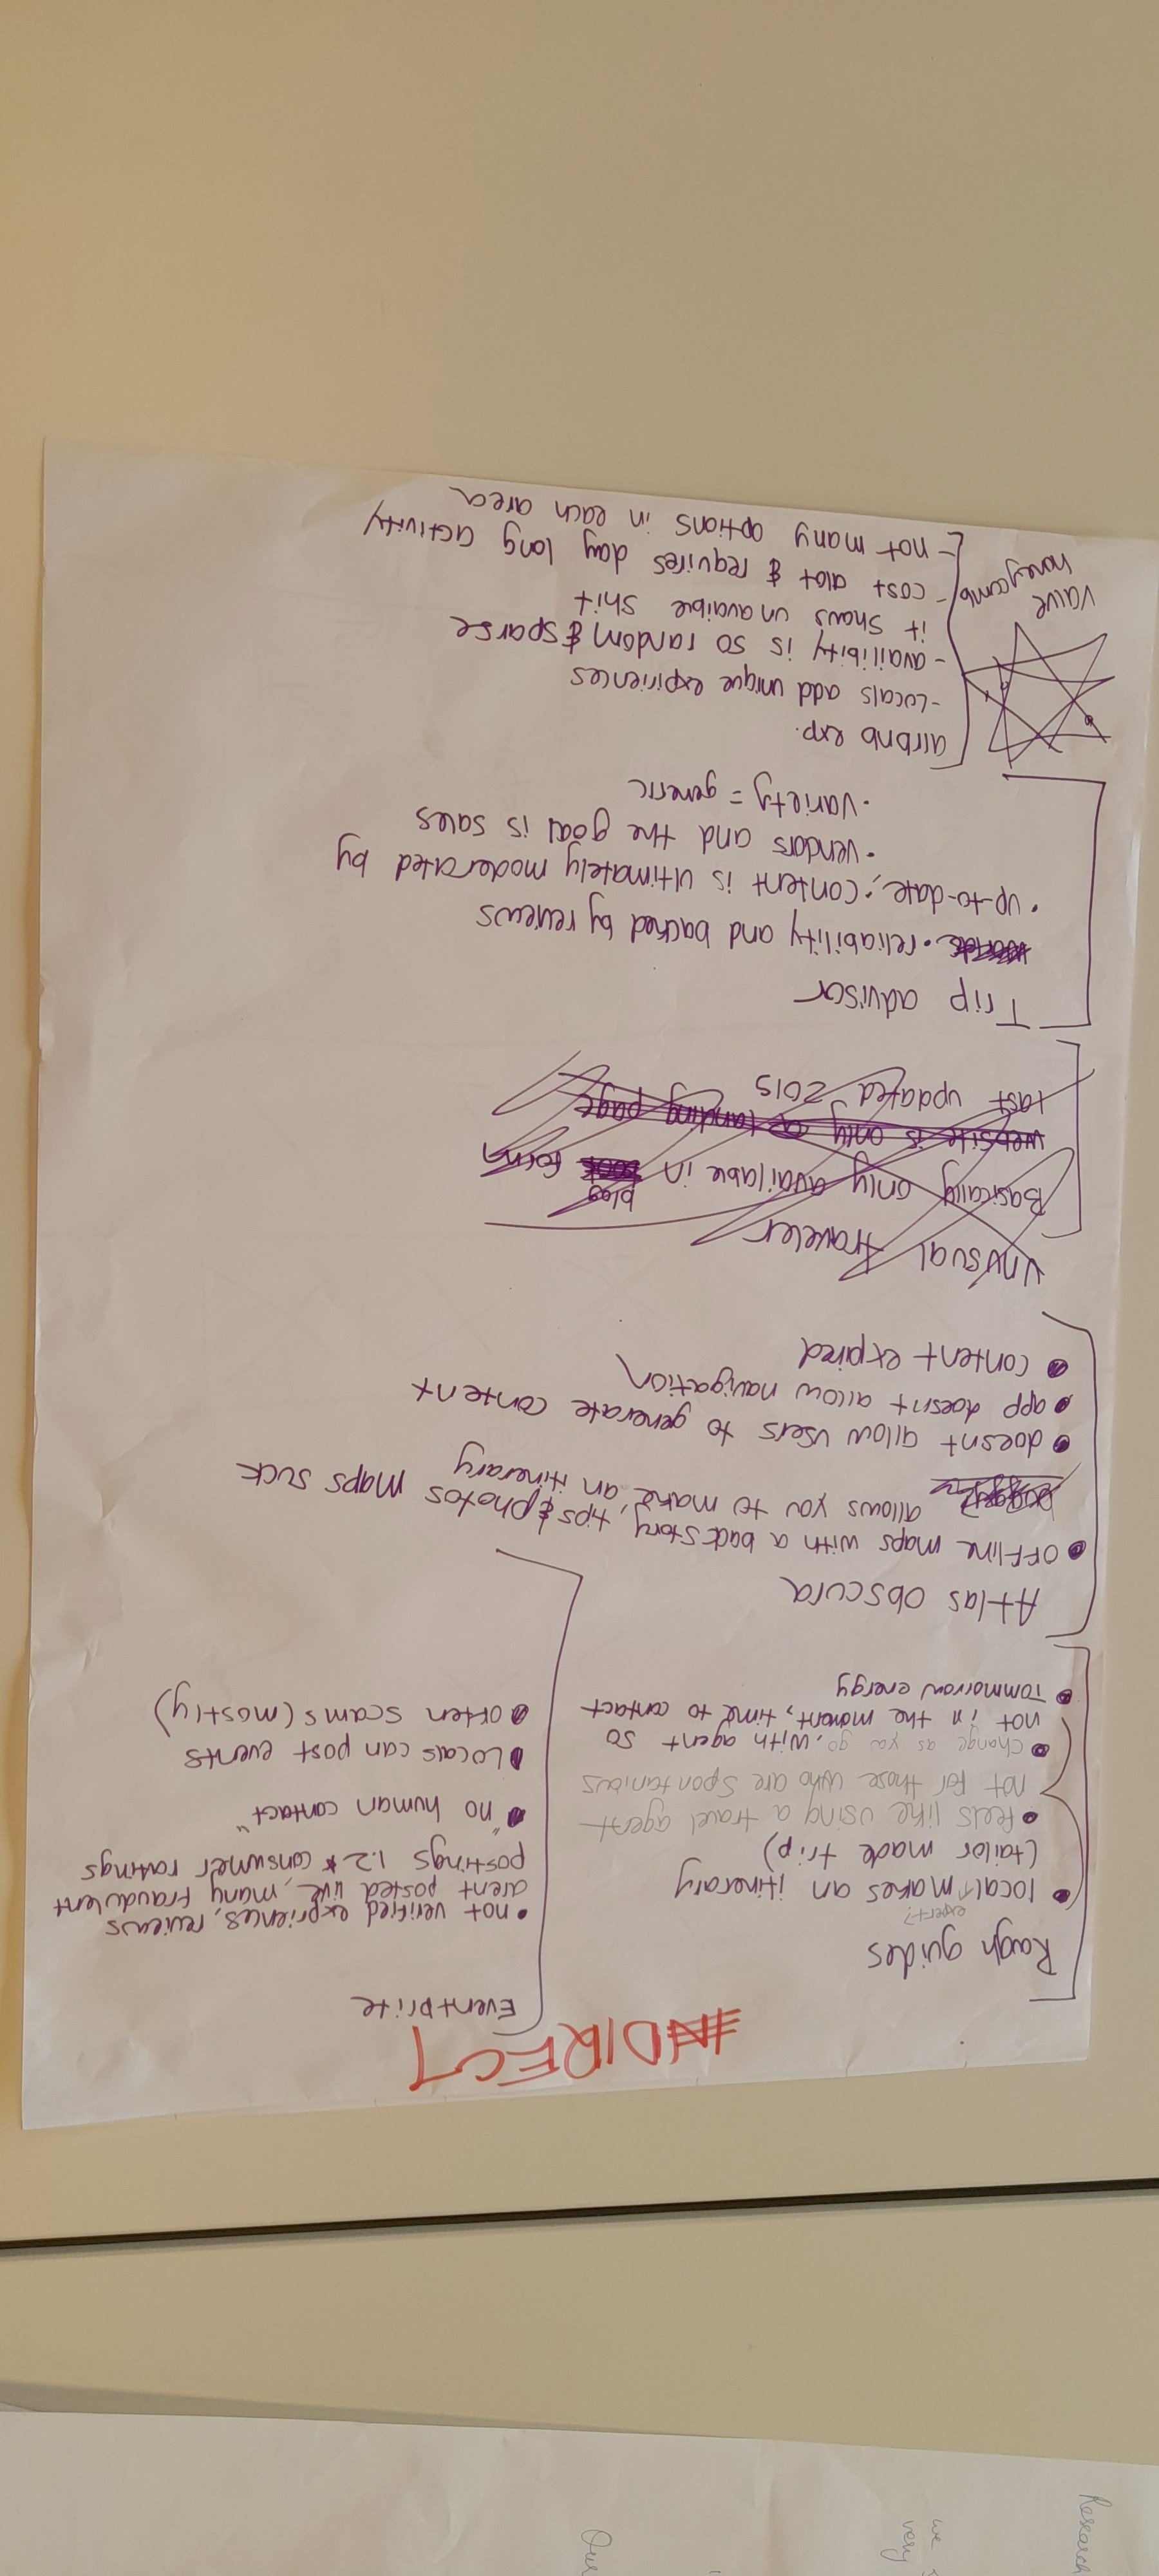 INDIRECT
Rough guides
expert?
local makes an itinerary
(tailor made trip)
feels like using a travel agent
not for those who are spontanious
change as you go, with agent so
not in the moment, time to contact
Tommorrow energy
Eventbrite
not verified expriences, reviews
arent posted live, many fraudulent
postings 1.2 * consumer ratings
"no human contact"
Locals can post events
often scams (mostly)
Atlas Obscura
OFFline maps with a backstory, tips & photos maps suck
allows you to make an itinerary
doesnt allow users to generate content
app doesnt allow navigation
content expired
Unusual traveler
blog
Basically only available in form
website is only landing page
Last updated 2015
Trip advisor
reliability and backed by reviews
up-to-date; content is ultimately moderated by
vendors and the goal is sales
variety = generic
airbnb exp.
-Locals add unique expiriences
-availibity is so random & sparse
it shows unavaible shit
-cost alot & requires day long activity
-not many options in each area
value
honeycomb
Research
we
very
Our